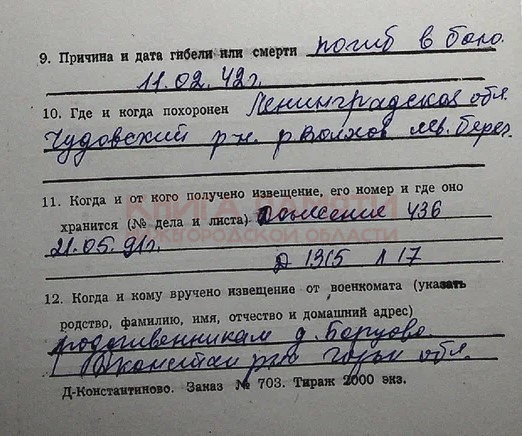 9. Причина и дата гибели или смерти погиб в бою.
11.02.42г.
10. Где и когда похоронен Ленинградская обл.
Чудовский р-н. р Волхов лев. берег.
11. Когда и от кого получено извещение, его номер и где оно
КНИГА ПАМЯТИ
хранится (№ дела и листа) 436
НИЖЕГОРОДСКОЙ ОБЛАСТИ
21.05.91г.
Д 1315 Л 17
12. Когда и кому вручено извещение от военкомата (указать
родство, фамилию, имя, отчество и домашний адрес)
родственникам д. Борцово
Дконстан р-на горьк обл.
Д-Константиново. Заказ № 703. Тираж 2000 экз.